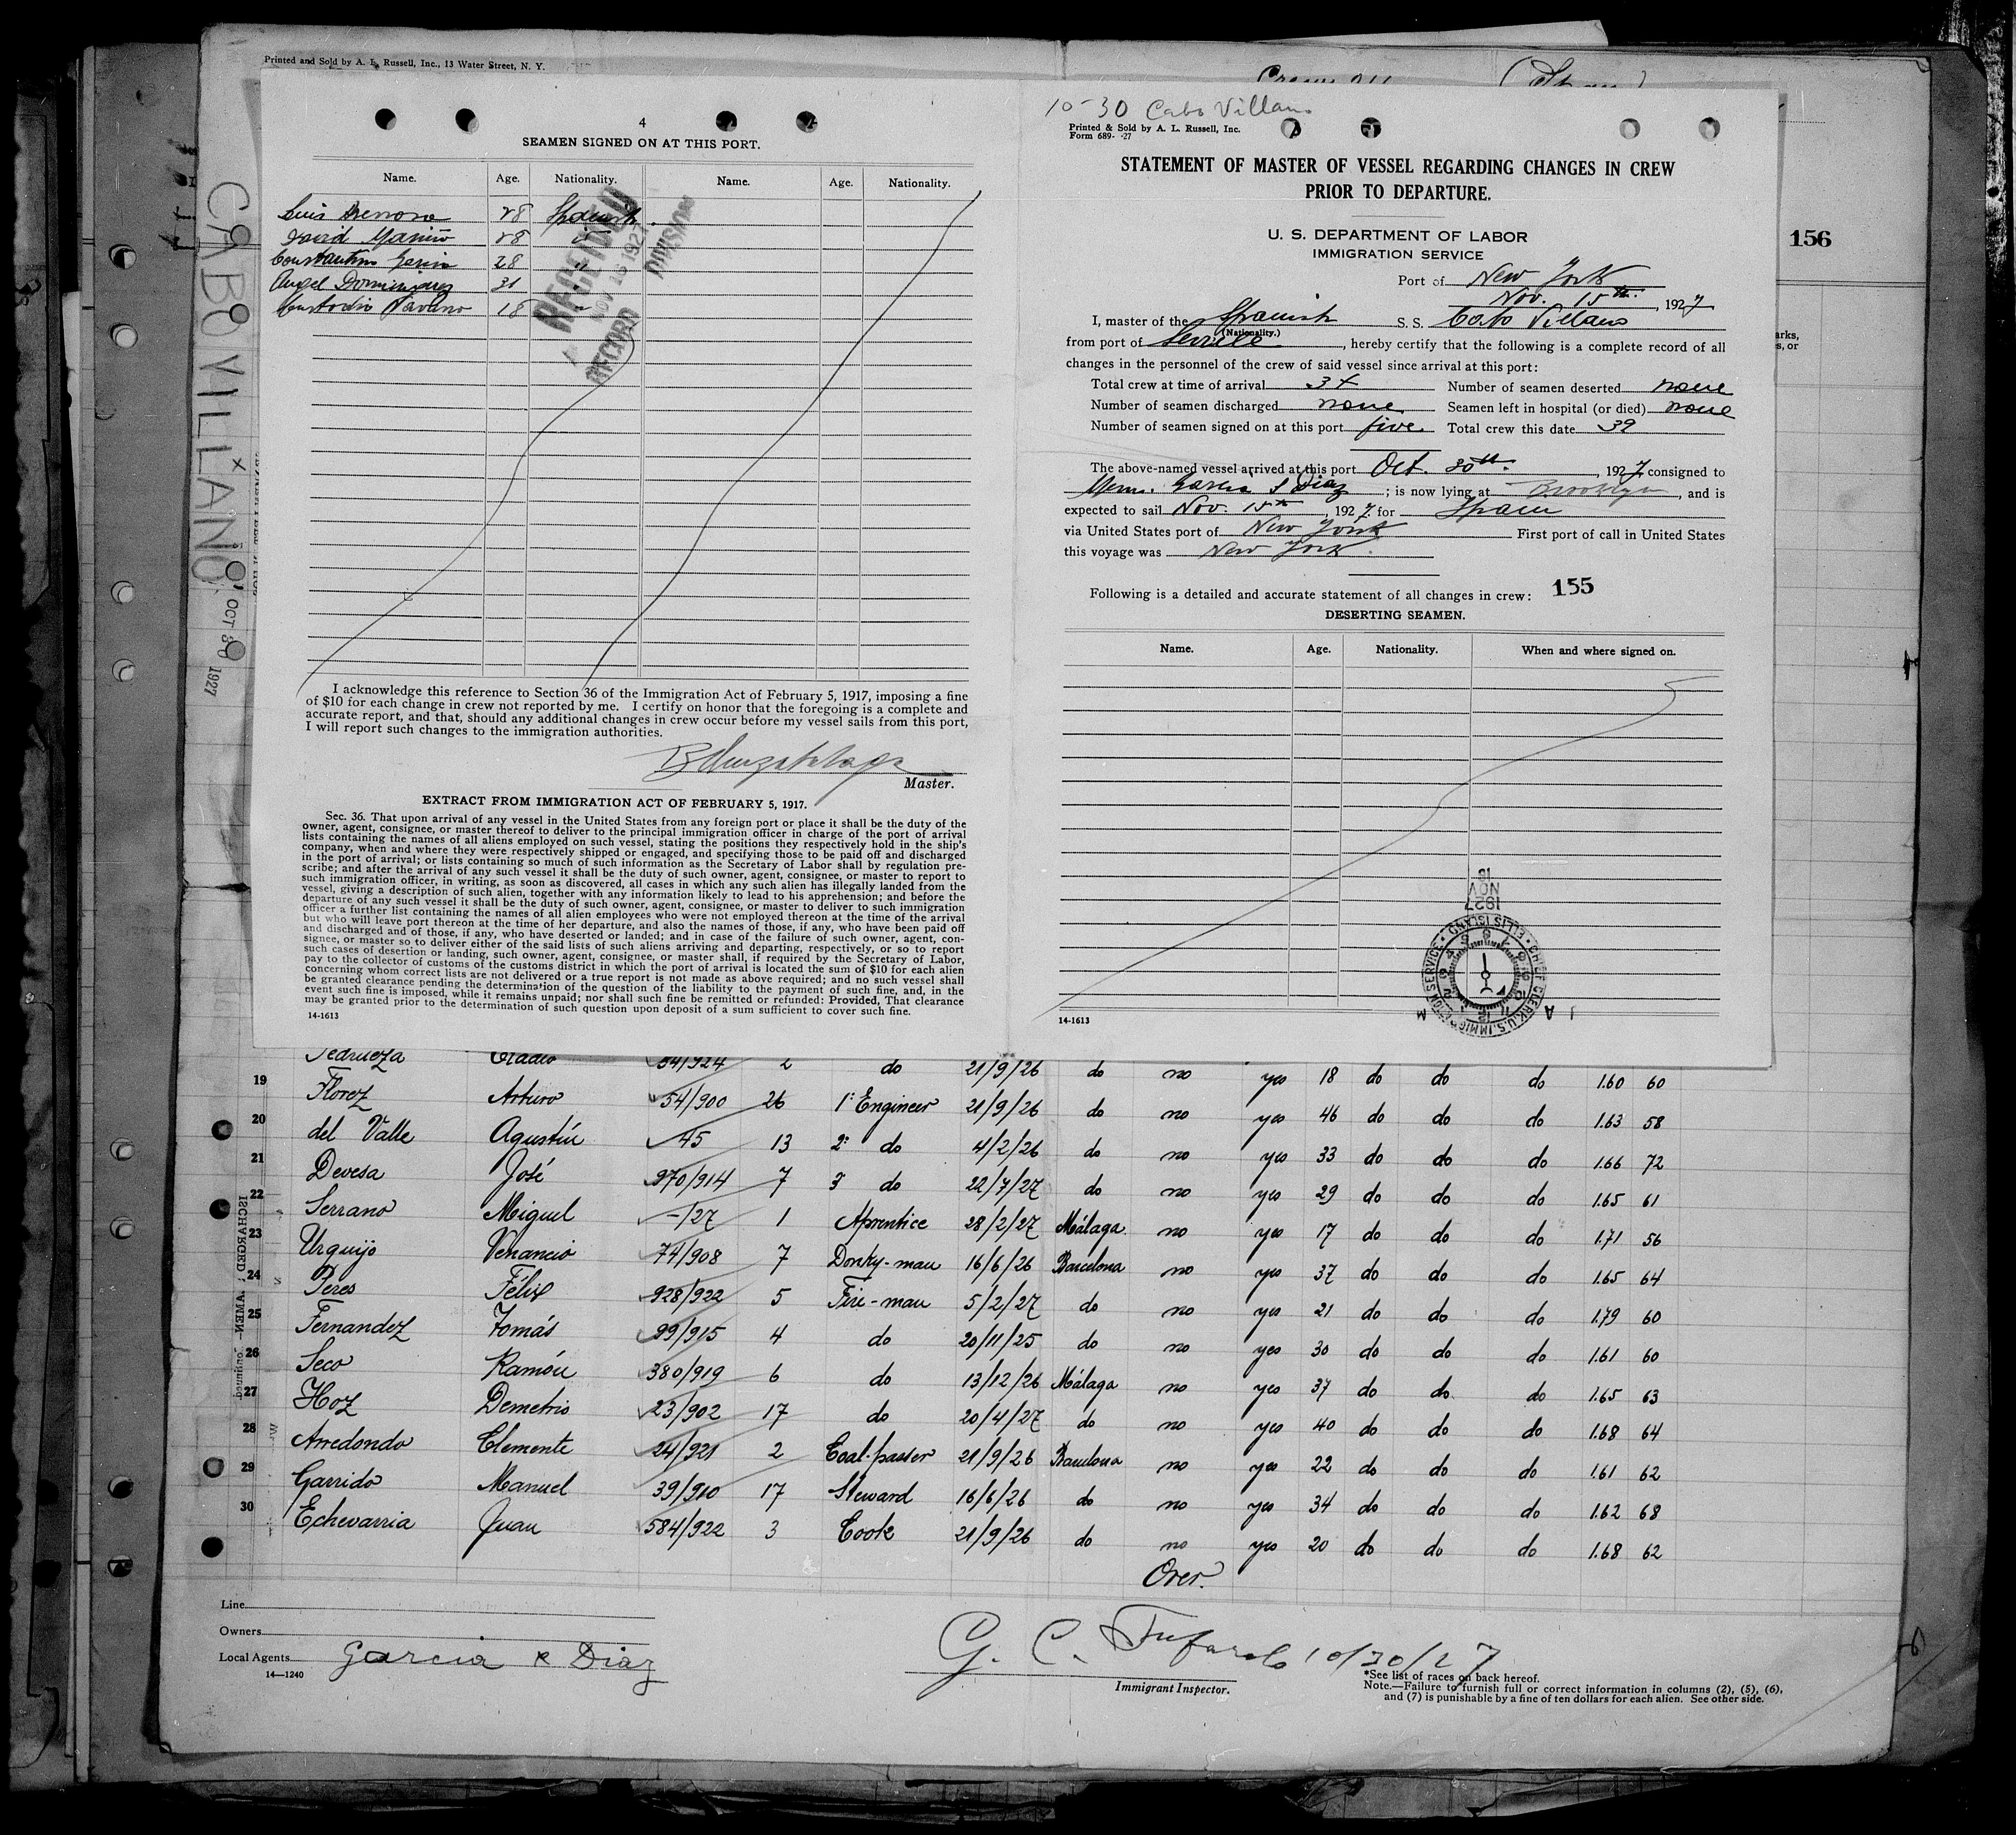 Printed and Sold by A. L. Russell, Inc., 13 Water Street, N. Y.
CABO VILLANO
OCT 30 1927
4
SEAMEN SIGNED ON AT THIS PORT.
Name. Age. Nationality. Name. Age. Nationality.
Luis 28 Spanish
David 28 "
28 "
Angel Dominguez 31
Custodio 18 "
RECEIVED
NOV 16 1927
RECORD DIVISION
I acknowledge this reference to Section 36 of the Immigration Act of February 5, 1917, imposing a fine
of $10 for each change in crew not reported by me. I certify on honor that the foregoing is a complete and
accurate report, and that, should any additional changes in crew occur before my vessel sails from this port,
I will report such changes to the immigration authorities.
Master.
EXTRACT FROM IMMIGRATION ACT OF FEBRUARY 5, 1917.
Sec. 36. That upon arrival of any vessel in the United States from any foreign port or place it shall be the duty of the
owner, agent, consignee, or master thereof to deliver to the principal immigration officer in charge of the port of arrival
lists containing the names of all aliens employed on such vessel, stating the positions they respectively hold in the ship's
company, when and where they were respectively shipped or engaged, and specifying those to be paid off and discharged
in the port of arrival; or lists containing so much of such information as the Secretary of Labor shall by regulation pre-
scribe; and after the arrival of any such vessel it shall be the duty of such owner, agent, consignee, or master to report to
such immigration officer, in writing, as soon as discovered, all cases in which any such alien has illegally landed from the
vessel, giving a description of such alien, together with any information likely to lead to his apprehension; and before the
departure of any such vessel it shall be the duty of such owner, agent, consignee, or master to deliver to such immigration
officer a further list containing the names of all alien employees who were not employed thereon at the time of the arrival
but who will leave port thereon at the time of her departure, and also the names of those, if any, who have been paid off
and discharged and of those, if any, who have deserted or landed; and in case of the failure of such owner, agent, con-
signee, or master so to deliver either of the said lists of such aliens arriving and departing, respectively, or so to report
such cases of desertion or landing, such owner, agent, consignee, or master shall, if required by the Secretary of Labor,
pay to the collector of customs of the customs district in which the port of arrival is located the sum of $10 for each alien
concerning whom correct lists are not delivered or a true report is not made as above required; and no such vessel shall
be granted clearance pending the determination of the question of the liability to the payment of such fine, and, in the
event such fine is imposed, while it remains unpaid; nor shall such fine be remitted or refunded: Provided, That clearance
may be granted prior to the determination of such question upon deposit of a sum sufficient to cover such fine.
14-1613
10-30 Cabo Villano
Printed & Sold by A. L. Russell, Inc.
Form 689- -27
STATEMENT OF MASTER OF VESSEL REGARDING CHANGES IN CREW
PRIOR TO DEPARTURE.
U. S. DEPARTMENT OF LABOR
IMMIGRATION SERVICE
Port of New York
Nov. 15th, 1927
I, master of the Spanish S. S. Cabo Villano
(Nationality.)
from port of Seville, hereby certify that the following is a complete record of all
changes in the personnel of the crew of said vessel since arrival at this port:
Total crew at time of arrival 34 Number of seamen deserted none
Number of seamen discharged none Seamen left in hospital (or died) none
Number of seamen signed on at this port five Total crew this date 39
The above-named vessel arrived at this port Oct. 30th, 1927 consigned to
Garcia & Diaz; is now lying at Brooklyn, and is
expected to sail Nov. 15th, 1927 for Spain
via United States port of New York First port of call in United States
this voyage was New York.
Following is a detailed and accurate statement of all changes in crew: 155
DESERTING SEAMEN.
Name. Age. Nationality. When and where signed on.
1927 NOV 16
CHIEF CLERK, U.S. IMMIGRATION SERVICE · ELLIS ISLAND
14-1613
156
Pedrueza Eladio 54/924 2 do 21/9/26 do no yes 18 do do do 1.60 60
19 Florez Arturo 54/900 26 1º Engineer 21/9/26 do no yes 46 do do do 1.63 58
20 del Valle Agustín 45 13 2º do 4/2/26 do no yes 33 do do do 1.66 72
21 Devesa José 970/914 7 3º do 22/7/27 do no yes 29 do do do 1.65 61
22 Serrano Miguel -/27 1 Aprentice 28/2/27 Málaga no yes 17 do do do 1.71 56
23 Urquijo Venancio 74/908 7 Donky-man 16/6/26 Barcelona no yes 37 do do do 1.65 64
24 Peres Félix 928/922 5 Fire-man 5/2/27 do no yes 21 do do do 1.79 60
25 Fernandez Tomás 99/915 4 do 20/11/25 do no yes 30 do do do 1.61 60
26 Seco Ramón 380/919 6 do 13/12/26 Málaga no yes 37 do do do 1.65 63
27 Hoz Demetrio 23/902 17 do 20/4/27 do no yes 40 do do do 1.68 64
28 Arredondo Clemente 24/921 2 Coal-passer 21/9/26 Barcelona no yes 22 do do do 1.61 62
29 Garrido Manuel 39/910 17 Steward 16/6/26 do no yes 34 do do do 1.62 68
30 Echevarria Juan 584/922 3 Cook 21/9/26 do no yes 20 do do do 1.68 62
Over.
Line
Owners
Local Agents Garcia & Diaz
14—1240
G. C. 10/30/27
Immigrant Inspector.
*See list of races on back hereof.
Note.—Failure to furnish full or correct information in columns (2), (5), (6),
and (7) is punishable by a fine of ten dollars for each alien. See other side.